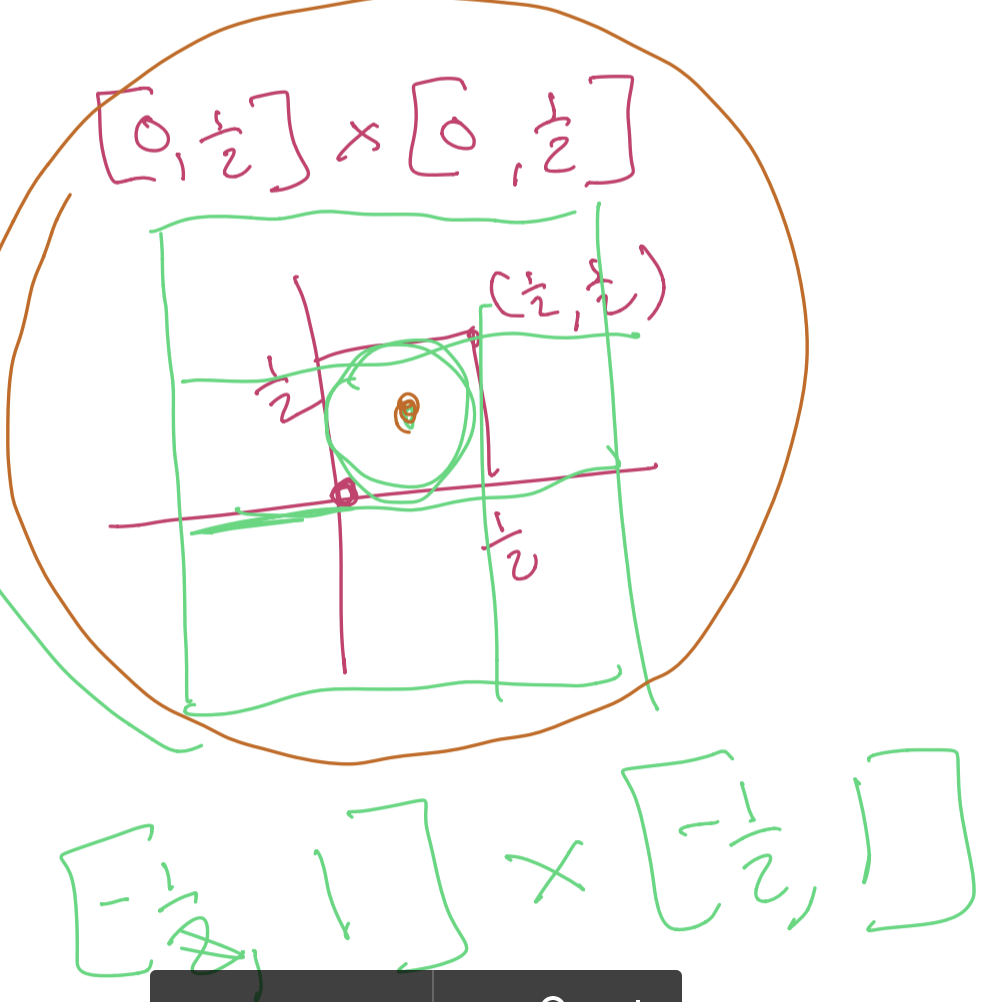 [0, 1/2] × [0, 1/2]
(1/2, 1/2)
1/2
1/2
[-1/2, 1] × [-1/2, 1]